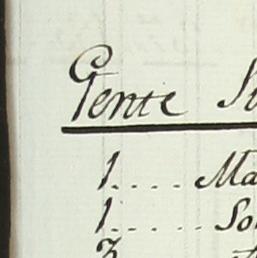 Gente
1.... Ma
1..... So
3